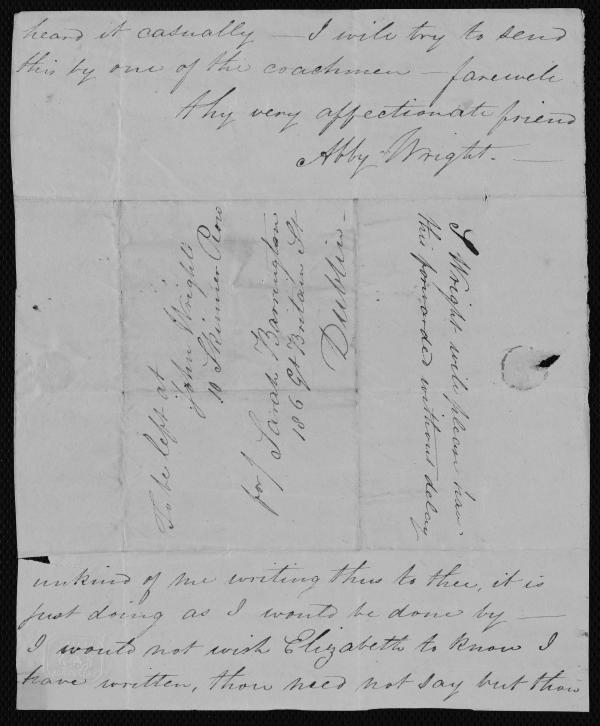 heard it casually — I will try to send
this by one of the coachmen — farewell
thy very affectionate friend
Abby Wright. —
To be left at
John Wrights
10 Skinner Row
for/
Sarah Barrington
186 Gt Britain St
Dublin —
J Wright will please have
this forwarded without delay
unkind of me writing thus to thee, it is
just doing as I would be done by —
I would not wish Elizabeth to know I
have written, thou need not say but thou